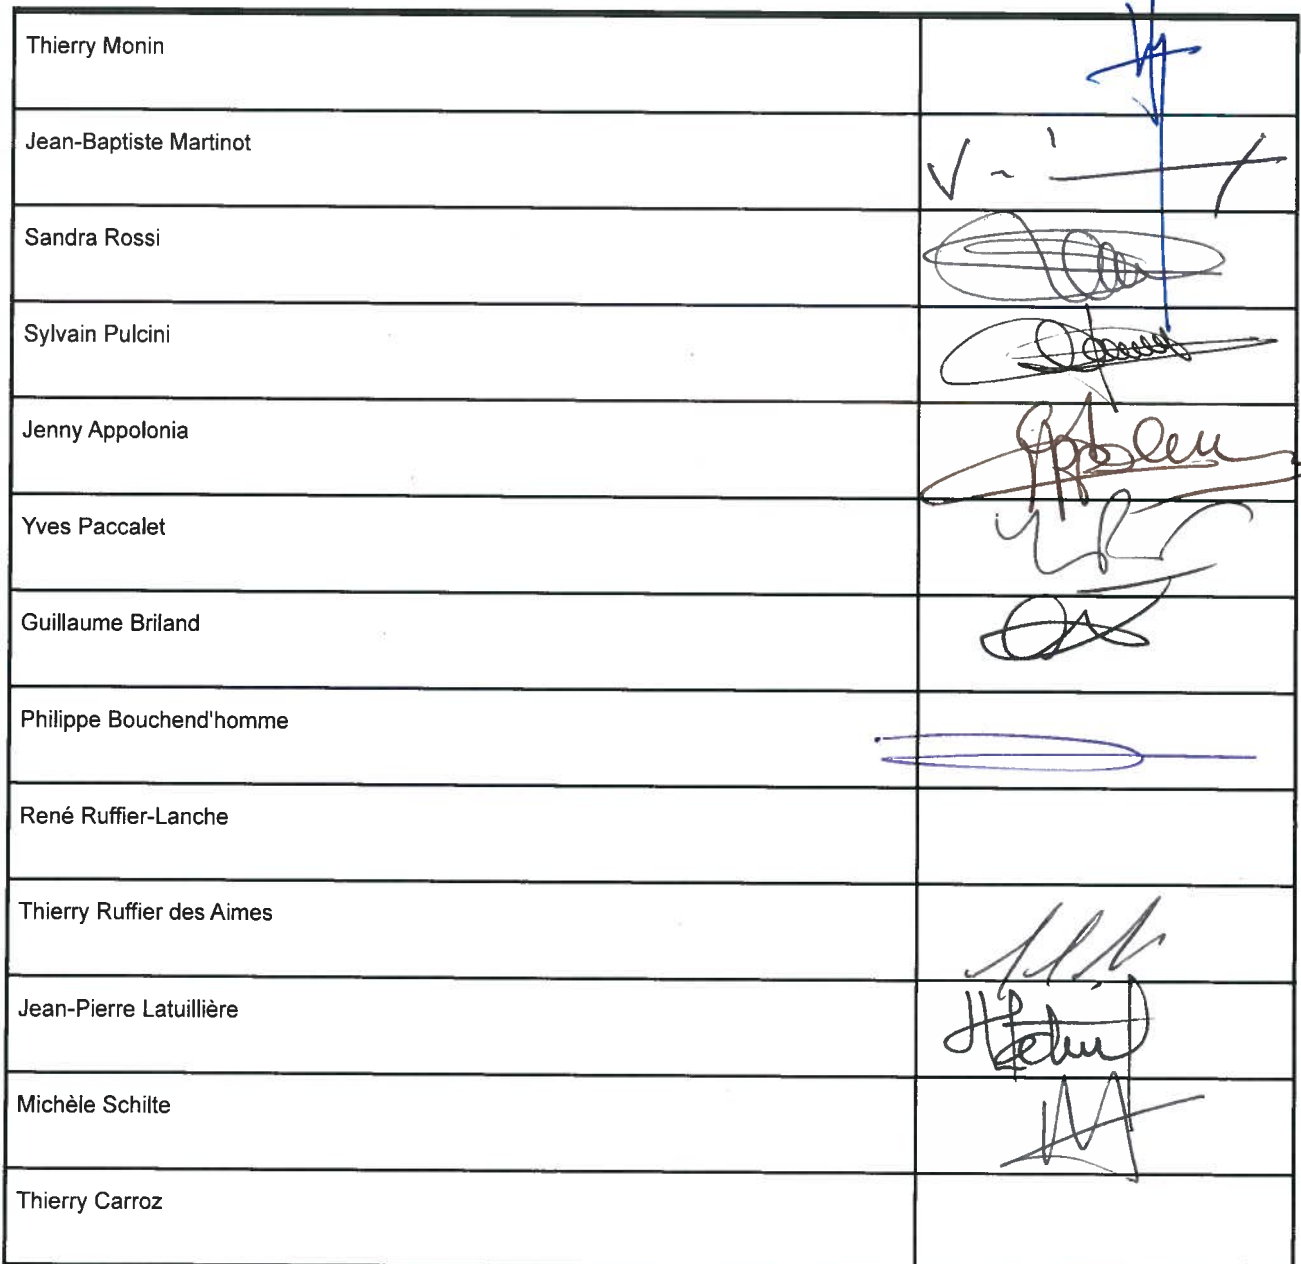 Thierry Monin
Jean-Baptiste Martinot
Sandra Rossi
Sylvain Pulcini
Jenny Appolonia
Yves Paccalet
Guillaume Briland
Philippe Bouchend'homme
René Ruffier-Lanche
Thierry Ruffier des Aimes
Jean-Pierre Latuillière
Michèle Schilte
Thierry Carroz